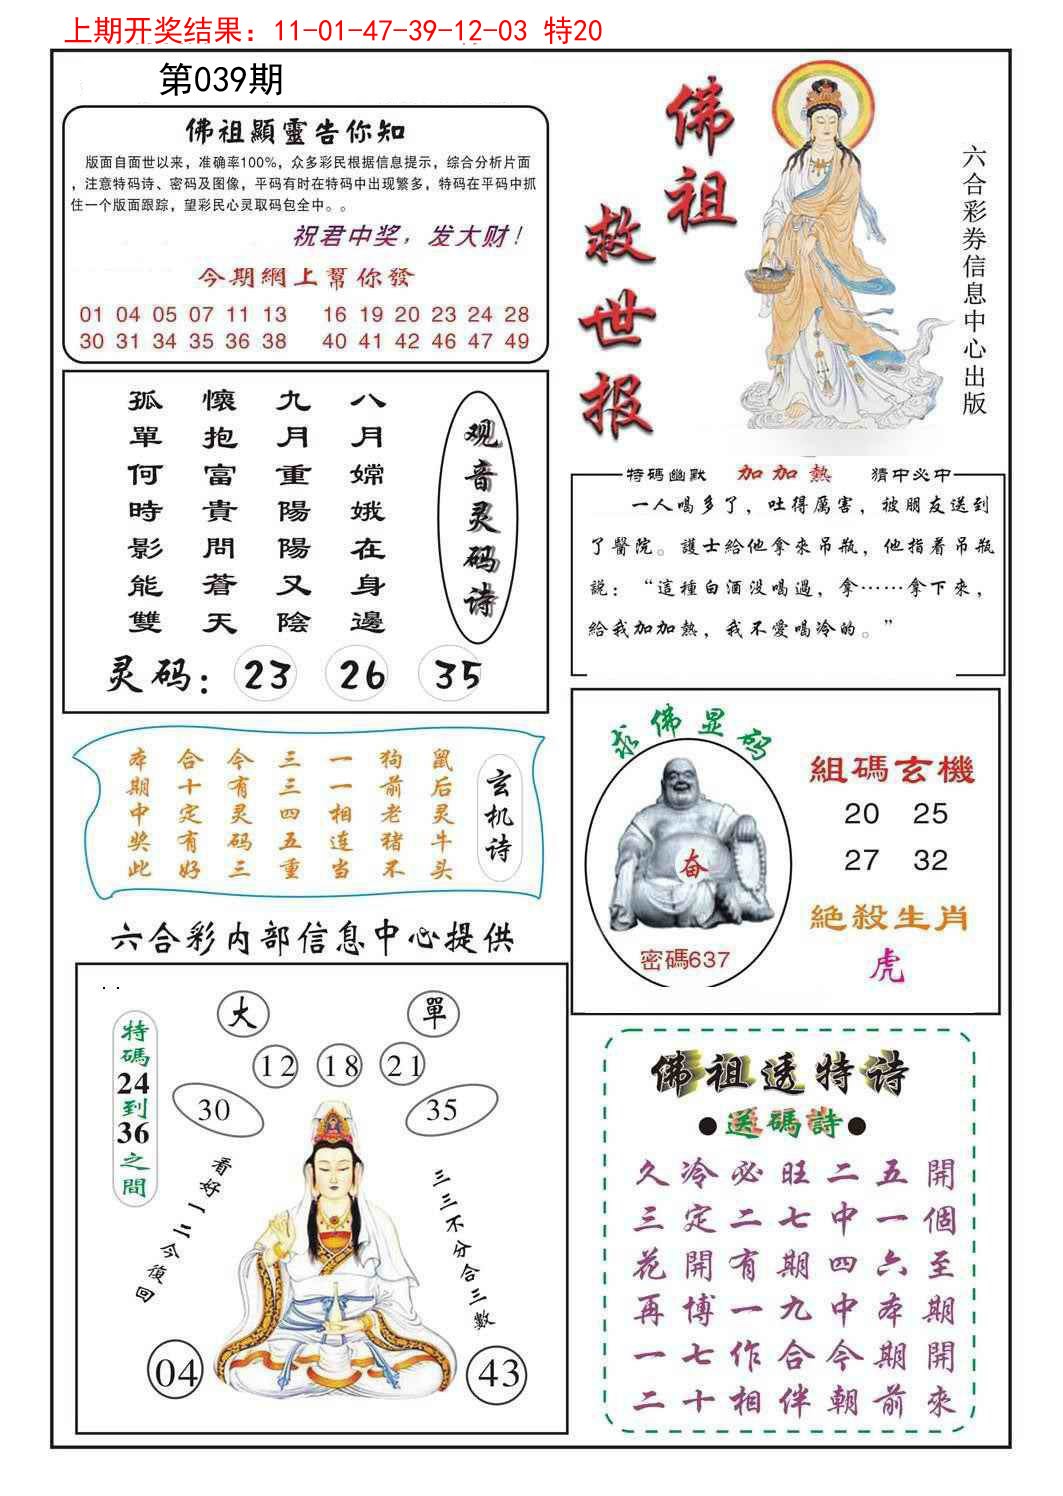 上期开奖结果：11-01-47-39-12-03 特20
第039期
佛祖顯靈告你知
版面自面世以来，准确率100%，众多彩民根据信息提示，综合分析片面
，注意特码诗、密码及图像，平码有时在特码中出现繁多，特码在平码中抓
住一个版面跟踪，望彩民心灵取码包全中。。
祝君中奖，发大财！
今期網上幫你發
01 04 05 07 11 13 16 19 20 23 24 28
30 31 34 35 36 38 40 41 42 46 47 49
佛祖
救世报
六合彩券信息中心出版
观音灵码诗
八月嫦娥在身邊
九月重陽陽又陰
懷抱富貴問蒼天
孤單何時影能雙
灵码：23 26 35
特碼幽默 加加熱 猜中必中
一人喝多了，吐得厲害，被朋友送到
了醫院。護士給他拿來吊瓶，他指着吊瓶
説：“這種白酒没喝過，拿……拿下來，
給我加加熱，我不愛喝冷的。”
玄机诗
鼠后灵牛头
狗前老猪不
一一相连当
三三四五重
今有灵码三
合十定有好
本期中奖此
求佛显码
奋
密碼637
組碼玄機
20 25
27 32
絕殺生肖
虎
六合彩内部信息中心提供
特碼24到36之間
大 單
12 18 21
30 35
看好一二今值回
三三不分合三數
04 43
佛祖透特诗
●送碼詩●
久冷必旺二五開
三定二七中一個
花開有期四六至
再博一九中本期
一七作合今期開
二十相伴朝前來